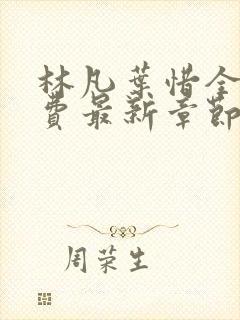 林凡葉惜全
費最新章節
周荣生